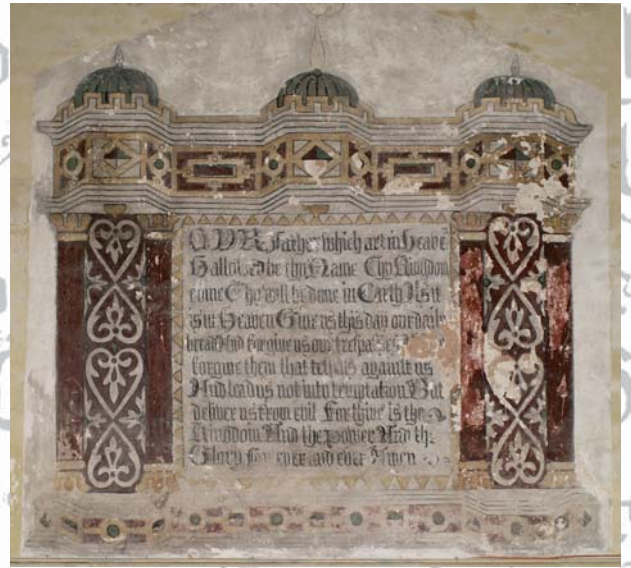 OVR Father which art in Heave
Hallowed be thy Name Thy Kingdom
come Thy will be done in Earth As it
is in Heaven Give us this day our daily
bread And forgive us our trespasses
forgive them that trespas against us
And lead us not into temptation But
deliver us from evil For thine is the
Kingdom And the power And the
Glory for ever and ever Amen